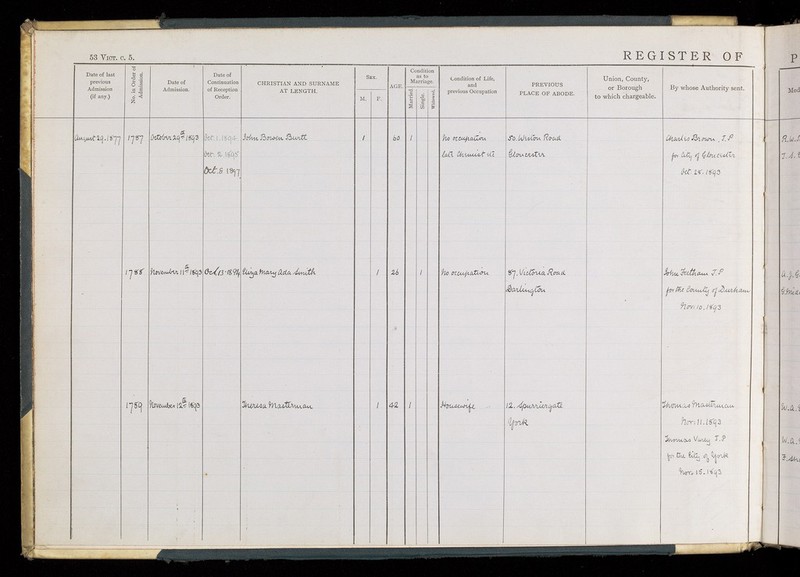 53 VICT. c. 5.
REGISTER OF
Date of last previous Admission (if any.)
No. in Order of Admission.
Date of Admission.
Date of Continuation of Reception Order.
CHRISTIAN AND SURNAME AT LENGTH.
Sex.
M. F.
AGE.
Condition as to Marriage.
Married Single. Widowed.
Condition of Life, and previous Occupation
PREVIOUS PLACE OF ABODE.
Union, County, or Borough to which chargeable.
By whose Authority sent.
August 29.1877 1787 October 29th 1893 Oct. 1. 1894 John Bowen Burtt 1 60 1 No occupation 50. Weston Road Charles Brown, J.P
Oct. 2. 1895 late Chemist Gloucester for City of Gloucester
Oct. 8 1897 Oct 28. 1893
1788 November 11th 1893 Oct 13. 1894 Eliza Mary Ada Smith 1 26 1 No occupation 87. Victoria Road John Feetham J.P
Darlington for the County of Durham
Nov. 10. 1893
1789 November 12th 1893 Theresa Masterman 1 42 1 Housewife 12. Spurriergate Thomas Masterman
York Nov. 11. 1893
Thomas Varey J.P
for the City of York
Nov. 15. 1893